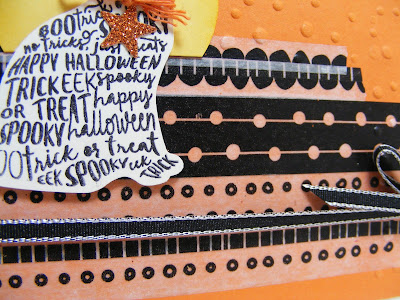 BOO trick SPOOKY
no tricks, just treats
HAPPY HALLOWEEN
TRICK EEK spooky
OR TREAT happy
SPOOKY halloween
OO trick or treat
EEK SPOOKY eek TRICK